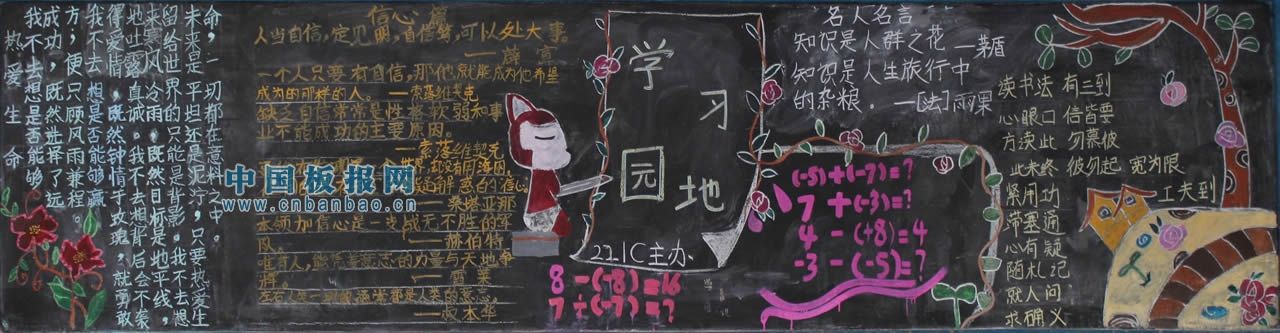 热爱生命
我不去想是否能够
成功，既然选择了远
方，便只顾风雨兼程。
我不去想是否能够赢
得爱情，既然钟情于玫瑰，就勇敢
地吐露真诚。我不去想背后会不会袭
来寒风冷雨，既然目标是地平线，
留给世界的只能是背影。我不去想
未来是平坦还是泥泞，只要热爱生
命，一切都在意料之中。
信心篇
人当自信，定见明，自信笃，可以处大事。
一薛宣
一个人只要有自信，那他就能成为他希望
成为的那样的人。
缺乏自信常常是性格软弱和事
业不能成功的主要原因。
中国板报网
www.cnbanbao.cn
本领加信心是一支战无不胜的军
队。 一赫伯特
一雪莱
一叔本华
学习园地
22.1C主办
8-(-8)=16
7÷(-7)=?
名人名言
知识是人群之花 一茅盾
知识是人生旅行中
的杂粮。 一[法]雨果
(-5)+(-7)=?
7+(-3)=?
4-(+8)=4
-3-(-5)=?
读书法 有三到
心眼口 信皆要
方读此 勿慕彼
此未终 彼勿起 宽为限
紧用功 工夫到
滞塞通
心有疑
随札记
就人问
求确义